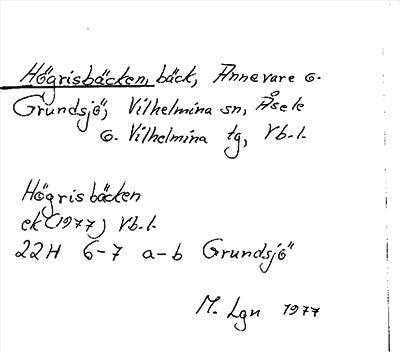 Högrisbäcken, bäck, Annevare o.
Grundsjö, Vilhelmina sn, Åsele
o. Vilhelmina tg, Vb.l.
Högrisbäcken
ek (1977) Vb.l.
22H 6-7 a-b Grundsjö
M. Lgn 1977